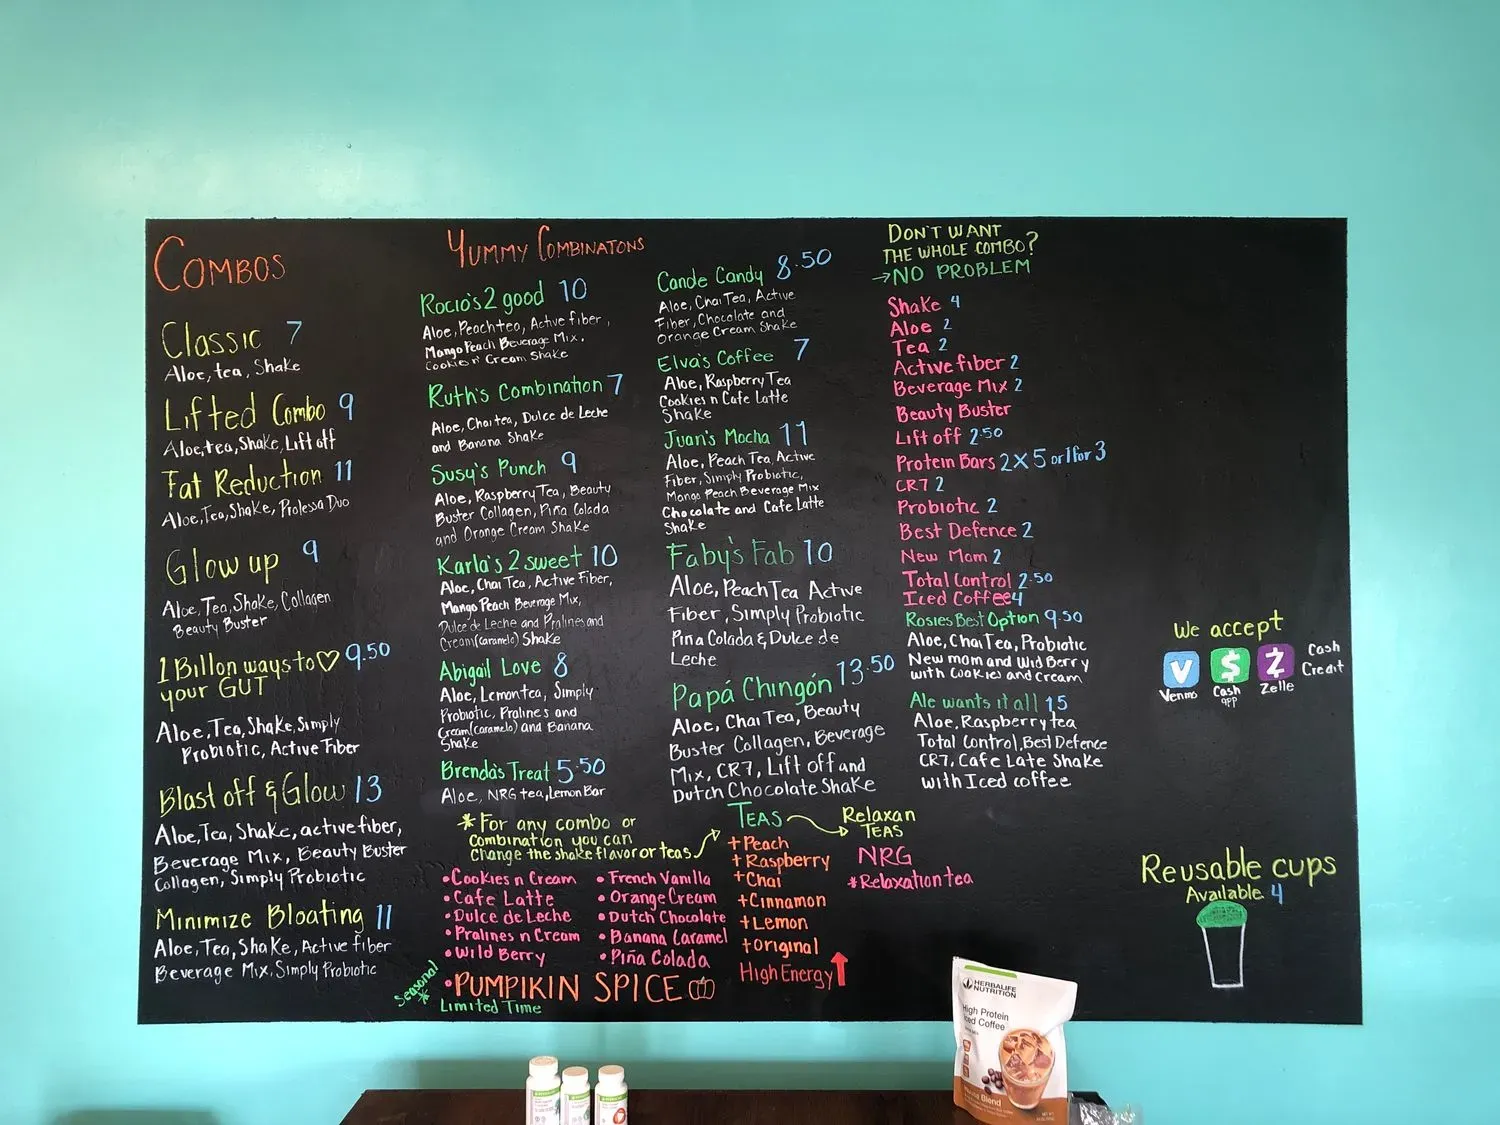 COMBOS
Classic 7
Aloe, tea, Shake
Lifted Combo 9
Aloe, tea, Shake, Lift off
Fat Reduction 11
Aloe, Tea, Shake, Prolessa Duo
Glow up 9
Aloe, Tea, Shake, Collagen
Beauty Buster
1 Billon ways to ♡ 9.50
your GUT
Aloe, Tea, Shake, Simply
Probiotic, Active Fiber
Blast off & Glow 13
Aloe, Tea, Shake, active fiber,
Beverage Mix, Beauty Buster
Collagen, Simply Probiotic
Minimize Bloating 11
Aloe, Tea, Shake, Active fiber
Beverage Mix, Simply Probiotic
YUMMY COMBINATONS
Rocio's 2 good 10
Aloe, Peach tea, Active fiber,
Mango Peach Beverage Mix,
Cookies n' Cream Shake
Ruth's Combination 7
Aloe, Chai tea, Dulce de Leche
and Banana Shake
Susy's Punch 9
Aloe, Raspberry Tea, Beauty
Buster Collagen, Piña Colada
and Orange Cream Shake
Karla's 2 sweet 10
Aloe, Chai Tea, Active Fiber,
Mango Peach Beverage Mix,
Dulce de Leche and Pralines and
Cream (caramelo) Shake
Abigail Love 8
Aloe, Lemon tea, Simply
Probiotic, Pralines and
Cream (caramelo) and Banana
Shake
Brenda's Treat 5.50
Aloe, NRG tea, Lemon Bar
Cande Candy 8.50
Aloe, Chai Tea, Active
Fiber, Chocolate and
Orange Cream Shake
Elva's Coffee 7
Aloe, Raspberry Tea
Cookies n Cafe Latte
Shake
Juan's Mocha 11
Aloe, Peach Tea, Active
Fiber, Simply Probiotic,
Mango Peach Beverage Mix
Chocolate and Cafe Latte
Shake
Faby's Fab 10
Aloe, Peach Tea Active
Fiber, Simply Probiotic
Pina Colada & Dulce de
Leche
Papá Chingón 13.50
Aloe, Chai Tea, Beauty
Buster Collagen, Beverage
Mix, CR7, Lift off and
Dutch Chocolate Shake
DON'T WANT
THE WHOLE COMBO?
→ NO PROBLEM
Shake 4
Aloe 2
Tea 2
Active fiber 2
Beverage Mix 2
Beauty Buster
Lift off 2.50
Protein Bars 2 X 5 or 1 for 3
CR7 2
Probiotic 2
Best Defence 2
New Mom 2
Total Control 2.50
Iced Coffee 4
Rosies Best Option 9.50
Aloe, Chai Tea, Probiotic
New mom and Wild Berry
with Cookies and Cream
Ale wants it all 15
Aloe, Raspberry tea
Total Control, Best Defence
CR7, Cafe Late Shake
with Iced coffee
* For any combo or
combination you can
change the shake flavor or teas
• Cookies n Cream
• Cafe Latte
• Dulce de Leche
• Pralines n Cream
• Wild Berry
• French Vanilla
• Orange Cream
• Dutch Chocolate
• Banana Caramel
• Piña Colada
Seasonal *
• PUMPIKIN SPICE
Limited Time
TEAS
+ Peach
+ Raspberry
+ Chai
+ Cinnamon
+ Lemon
+ Original
High Energy ↑
Relaxan
TEAS
NRG
* Relaxation tea
We accept
V
$
Z
Venmo
Cash
app
Zelle
Cash
Credit
Reusable cups
Available 4
HERBALIFE
NUTRITION
High Protein
Iced Coffee